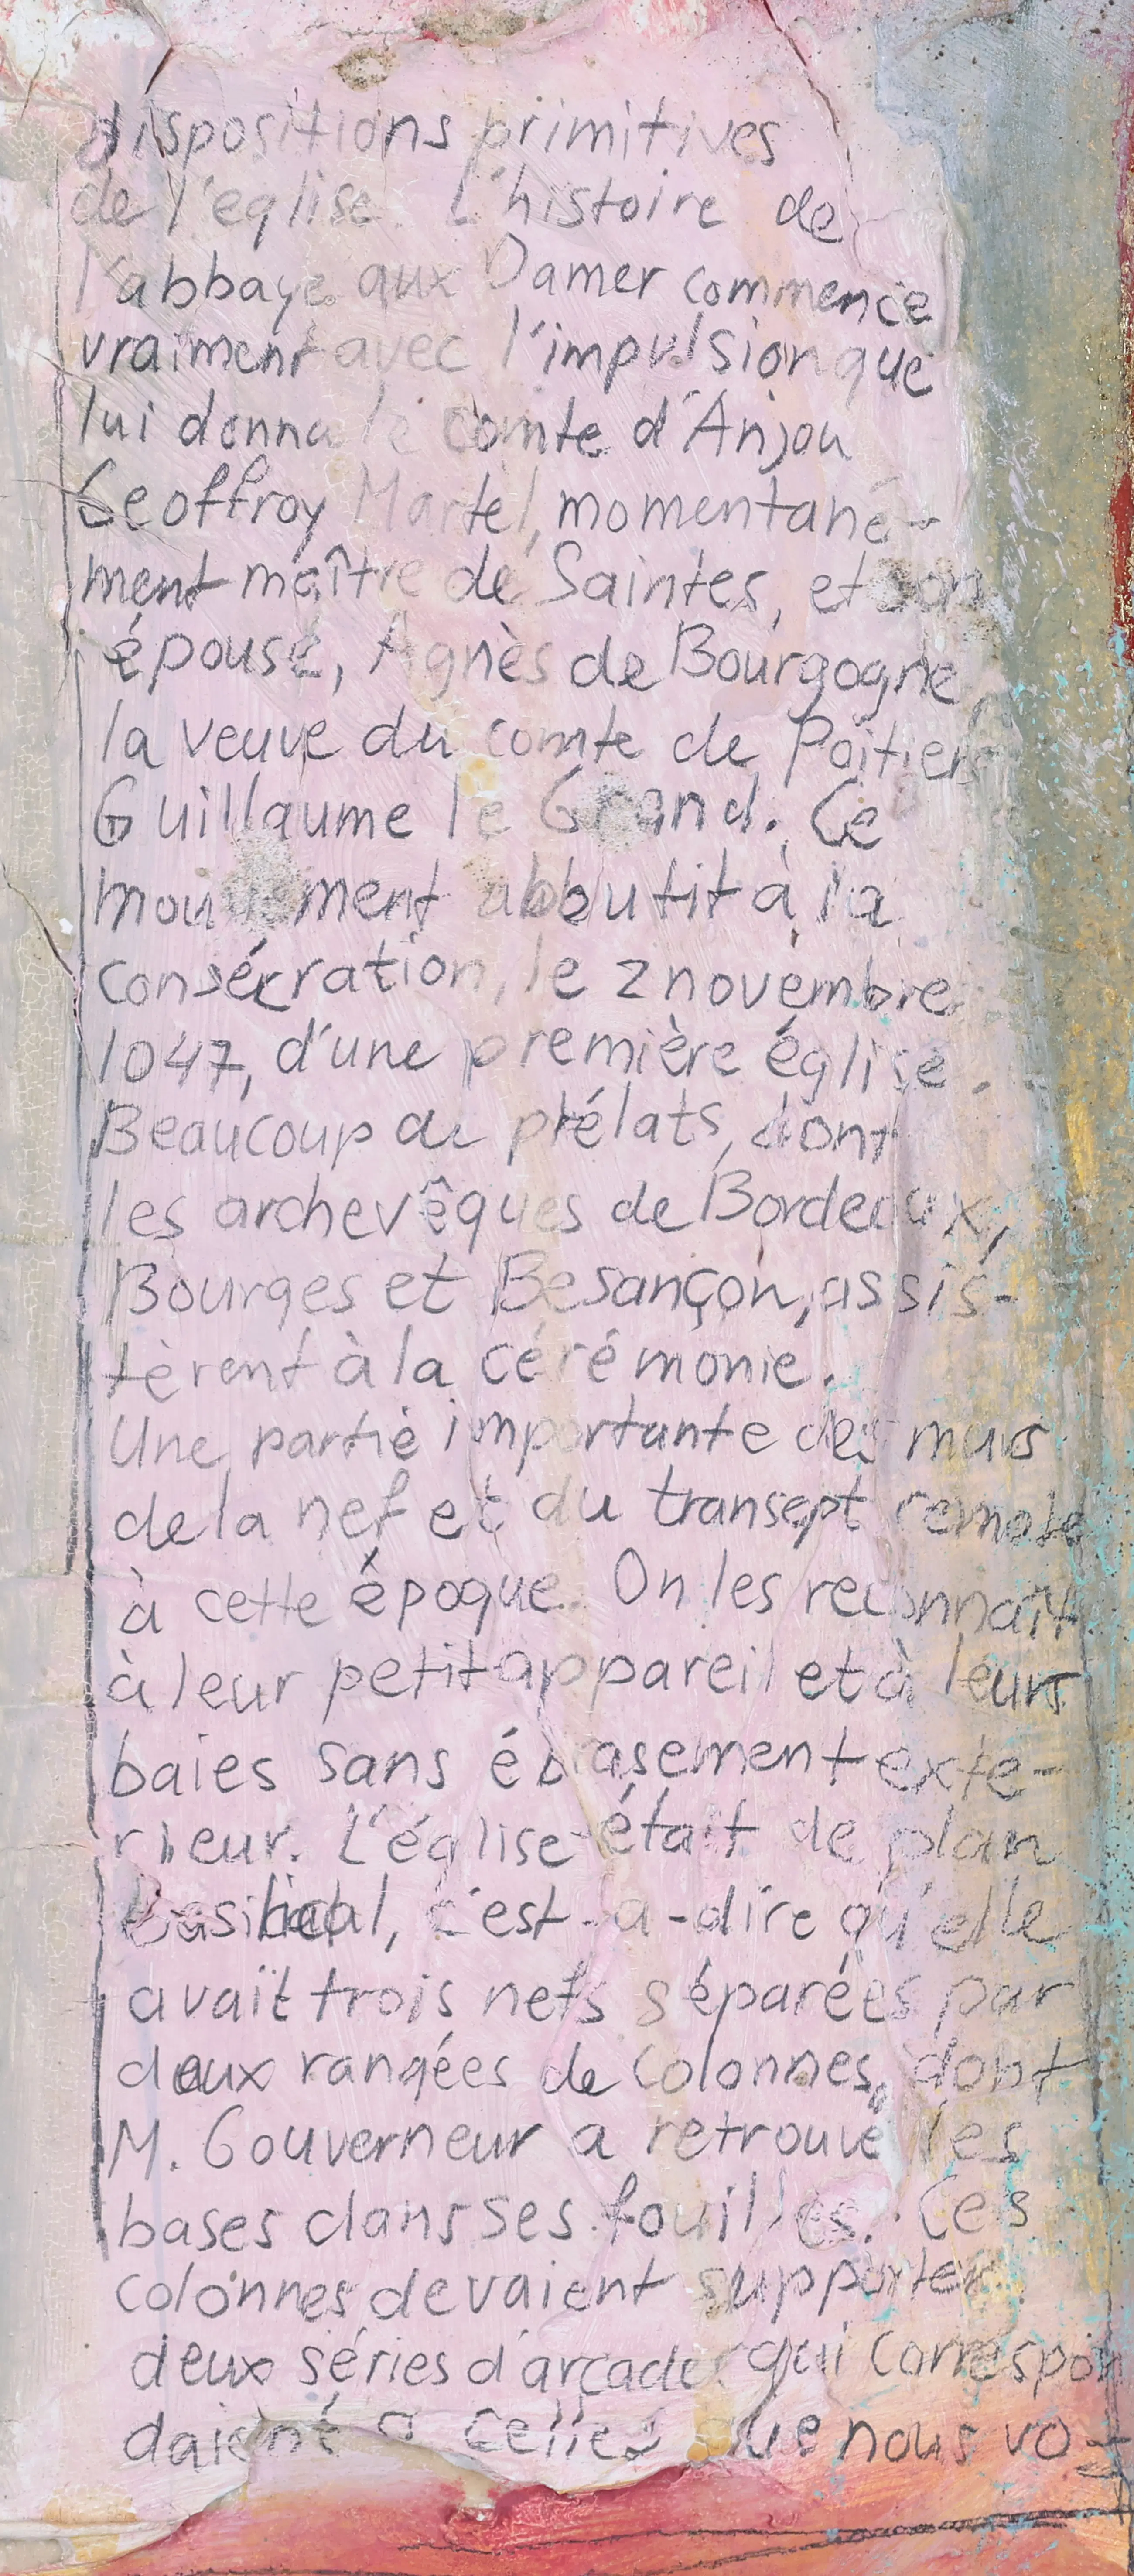 dispositions primitives
de l'eglise. L'histoire de
l'abbaye aux Damer commence
vraiment avec l'impulsion que
lui donna le comte d'Anjou
Geoffroy Martel, momentané-
ment maître de Saintes, et son
épouse, Agnès de Bourgogne,
la veuve du comte de Poitiers
Guillaume le Grand. Ce
mouvement abbutit à la
consécration, le 2 novembre
1047, d'une première église.
Beaucoup de prélats, dont
les archevêques de Bordeaux,
Bourges et Besançon, assis-
tèrent à la cérémonie.
Une partie importante des murs
de la nef et du transept remote
à cette époque. On les reconnaît
à leur petit appareil et à leurs
baies sans ébrasement exte-
rieur. L'église était de plan
Basilical, c'est-a-dire qu'elle
avait trois nefs séparées par
deux rangées de colonnes, dont
M. Gouverneur a retrouvé les
bases dans ses fouilles. Ces
colonnes devaient supporter
deux séries d'arcades qui correspon
daient a celles que nous vo-